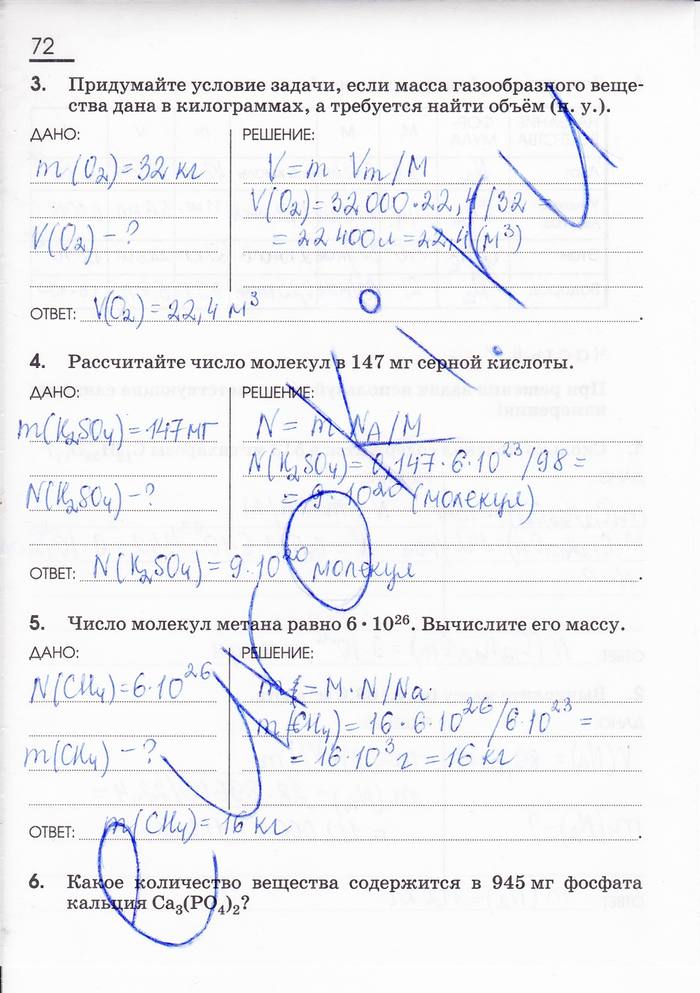 72
3. Придумайте условие задачи, если масса газообразного веще-
ства дана в килограммах, а требуется найти объём (н. у.).
ДАНО: РЕШЕНИЕ:
m(O₂)=32 кг V=m·Vm/M
V(O₂)=32 000·22,4/32 =
V(O₂) – ? = 22 400 л = 22,4 (м³)
ОТВЕТ: V(O₂) = 22,4 м³
4. Рассчитайте число молекул в 147 мг серной кислоты.
ДАНО: РЕШЕНИЕ:
m(K₂SO₄)=147 мг N = m·NA/M
N(K₂SO₄) = 0,147·6·10²³/98 =
N(K₂SO₄) – ? = 9·10²⁰ (молекул)
ОТВЕТ: N(K₂SO₄) = 9·10²⁰ молекул
5. Число молекул метана равно 6 • 10²⁶. Вычислите его массу.
ДАНО: РЕШЕНИЕ:
N(CH₄)=6·10²⁶ m = M·N/Na
m(CH₄) = 16·6·10²⁶/6·10²³ =
m(CH₄) – ? = 16·10³ г = 16 кг
ОТВЕТ: m(CH₄) = 16 кг
6. Какое количество вещества содержится в 945 мг фосфата
кальция Ca₃(PO₄)₂?